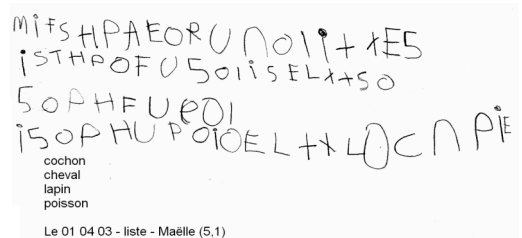 MiFSHPAEORUNOli++E5
iSTHPOFU5OiiSELX+SO
5OPHFUPOI
i5OPHUPOiOEL++LOCNPiE
cochon
cheval
lapin
poisson
Le 01 04 03 - liste - Maëlle (5,1)